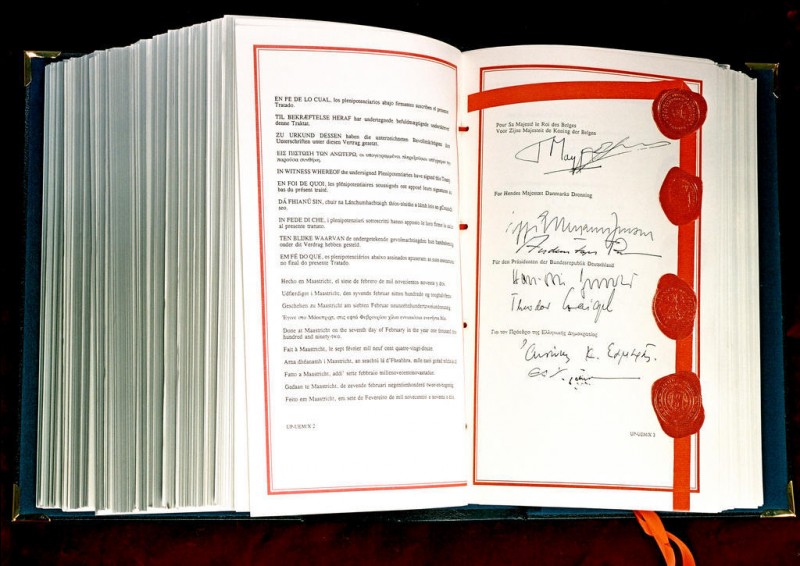 EN FE DE LO CUAL, los plenipotenciarios abajo firmantes suscriben el presente
Tratado.
TIL BEKRÆFTELSE HERAF har undertegnede befuldmægtigede underskrevet
denne Traktat.
ZU URKUND DESSEN haben die unterzeichneten Bevollmächtigten ihre
Unterschriften unter diesen Vertrag gesetzt.
ΕΙΣ ΠΙΣΤΩΣΗ ΤΩΝ ΑΝΩΤΕΡΩ, οι υπογεγραμμένοι πληρεξούσιοι υπέγραψαν την
παρούσα συνθήκη.
IN WITNESS WHEREOF the undersigned Plenipotentiaries have signed this Treaty.
EN FOI DE QUOI, les plénipotentiaires soussignés ont apposé leurs signatures au
bas du présent traité.
DÁ FHIANÚ SIN, chuir na Lánchumhachtaigh thíos-sínithe a lámh leis an gConradh
seo.
IN FEDE DI CHE, i plenipotenziari sottoscritti hanno apposto le loro firme in calce
al presente trattato.
TEN BLIJKE WAARVAN de ondergetekende gevolmachtigden hun handtekening
onder dit Verdrag hebben gesteld.
EM FÉ DO QUE, os plenipotenciários abaixo assinados apuseram as suas assinaturas
no final do presente Tratado.
Hecho en Maastricht, el siete de febrero de mil novecientos noventa y dos.
Udfærdiget i Maastricht, den syvende februar nitten hundrede og tooghalvfems.
Geschehen zu Maastricht am siebten Februar neunzehnhundertzweiundneunzig.
Έγινε στο Μάαστριχτ, στις εφτά Φεβρουαρίου χίλια εννιακόσια ενενήντα δύο.
Done at Maastricht on the seventh day of February in the year one thousand nine
hundred and ninety-two.
Fait à Maastricht, le sept février mil neuf cent quatre-vingt-douze.
Arna dhéanamh i Maastricht, an seachtú lá d'Fheabhra, míle naoi gcéad nócha a dó.
Fatto a Maastricht, addì' sette febbraio millenovecentonovantadue.
Gedaan te Maastricht, de zevende februari negentienhonderd twee-en-negentig.
Feito em Maastricht, em sete de Fevereiro de mil novecentos e noventa e dois.
UP-UEM/X 2
Pour Sa Majesté le Roi des Belges
Voor Zijne Majesteit de Koning der Belgen
For Hendes Majestæt Danmarks Dronning
Für den Präsidenten der Bundesrepublik Deutschland
Theodor Waigel
Για τον Πρόεδρο της Ελληνικής Δημοκρατίας
UP-UEM/X 3